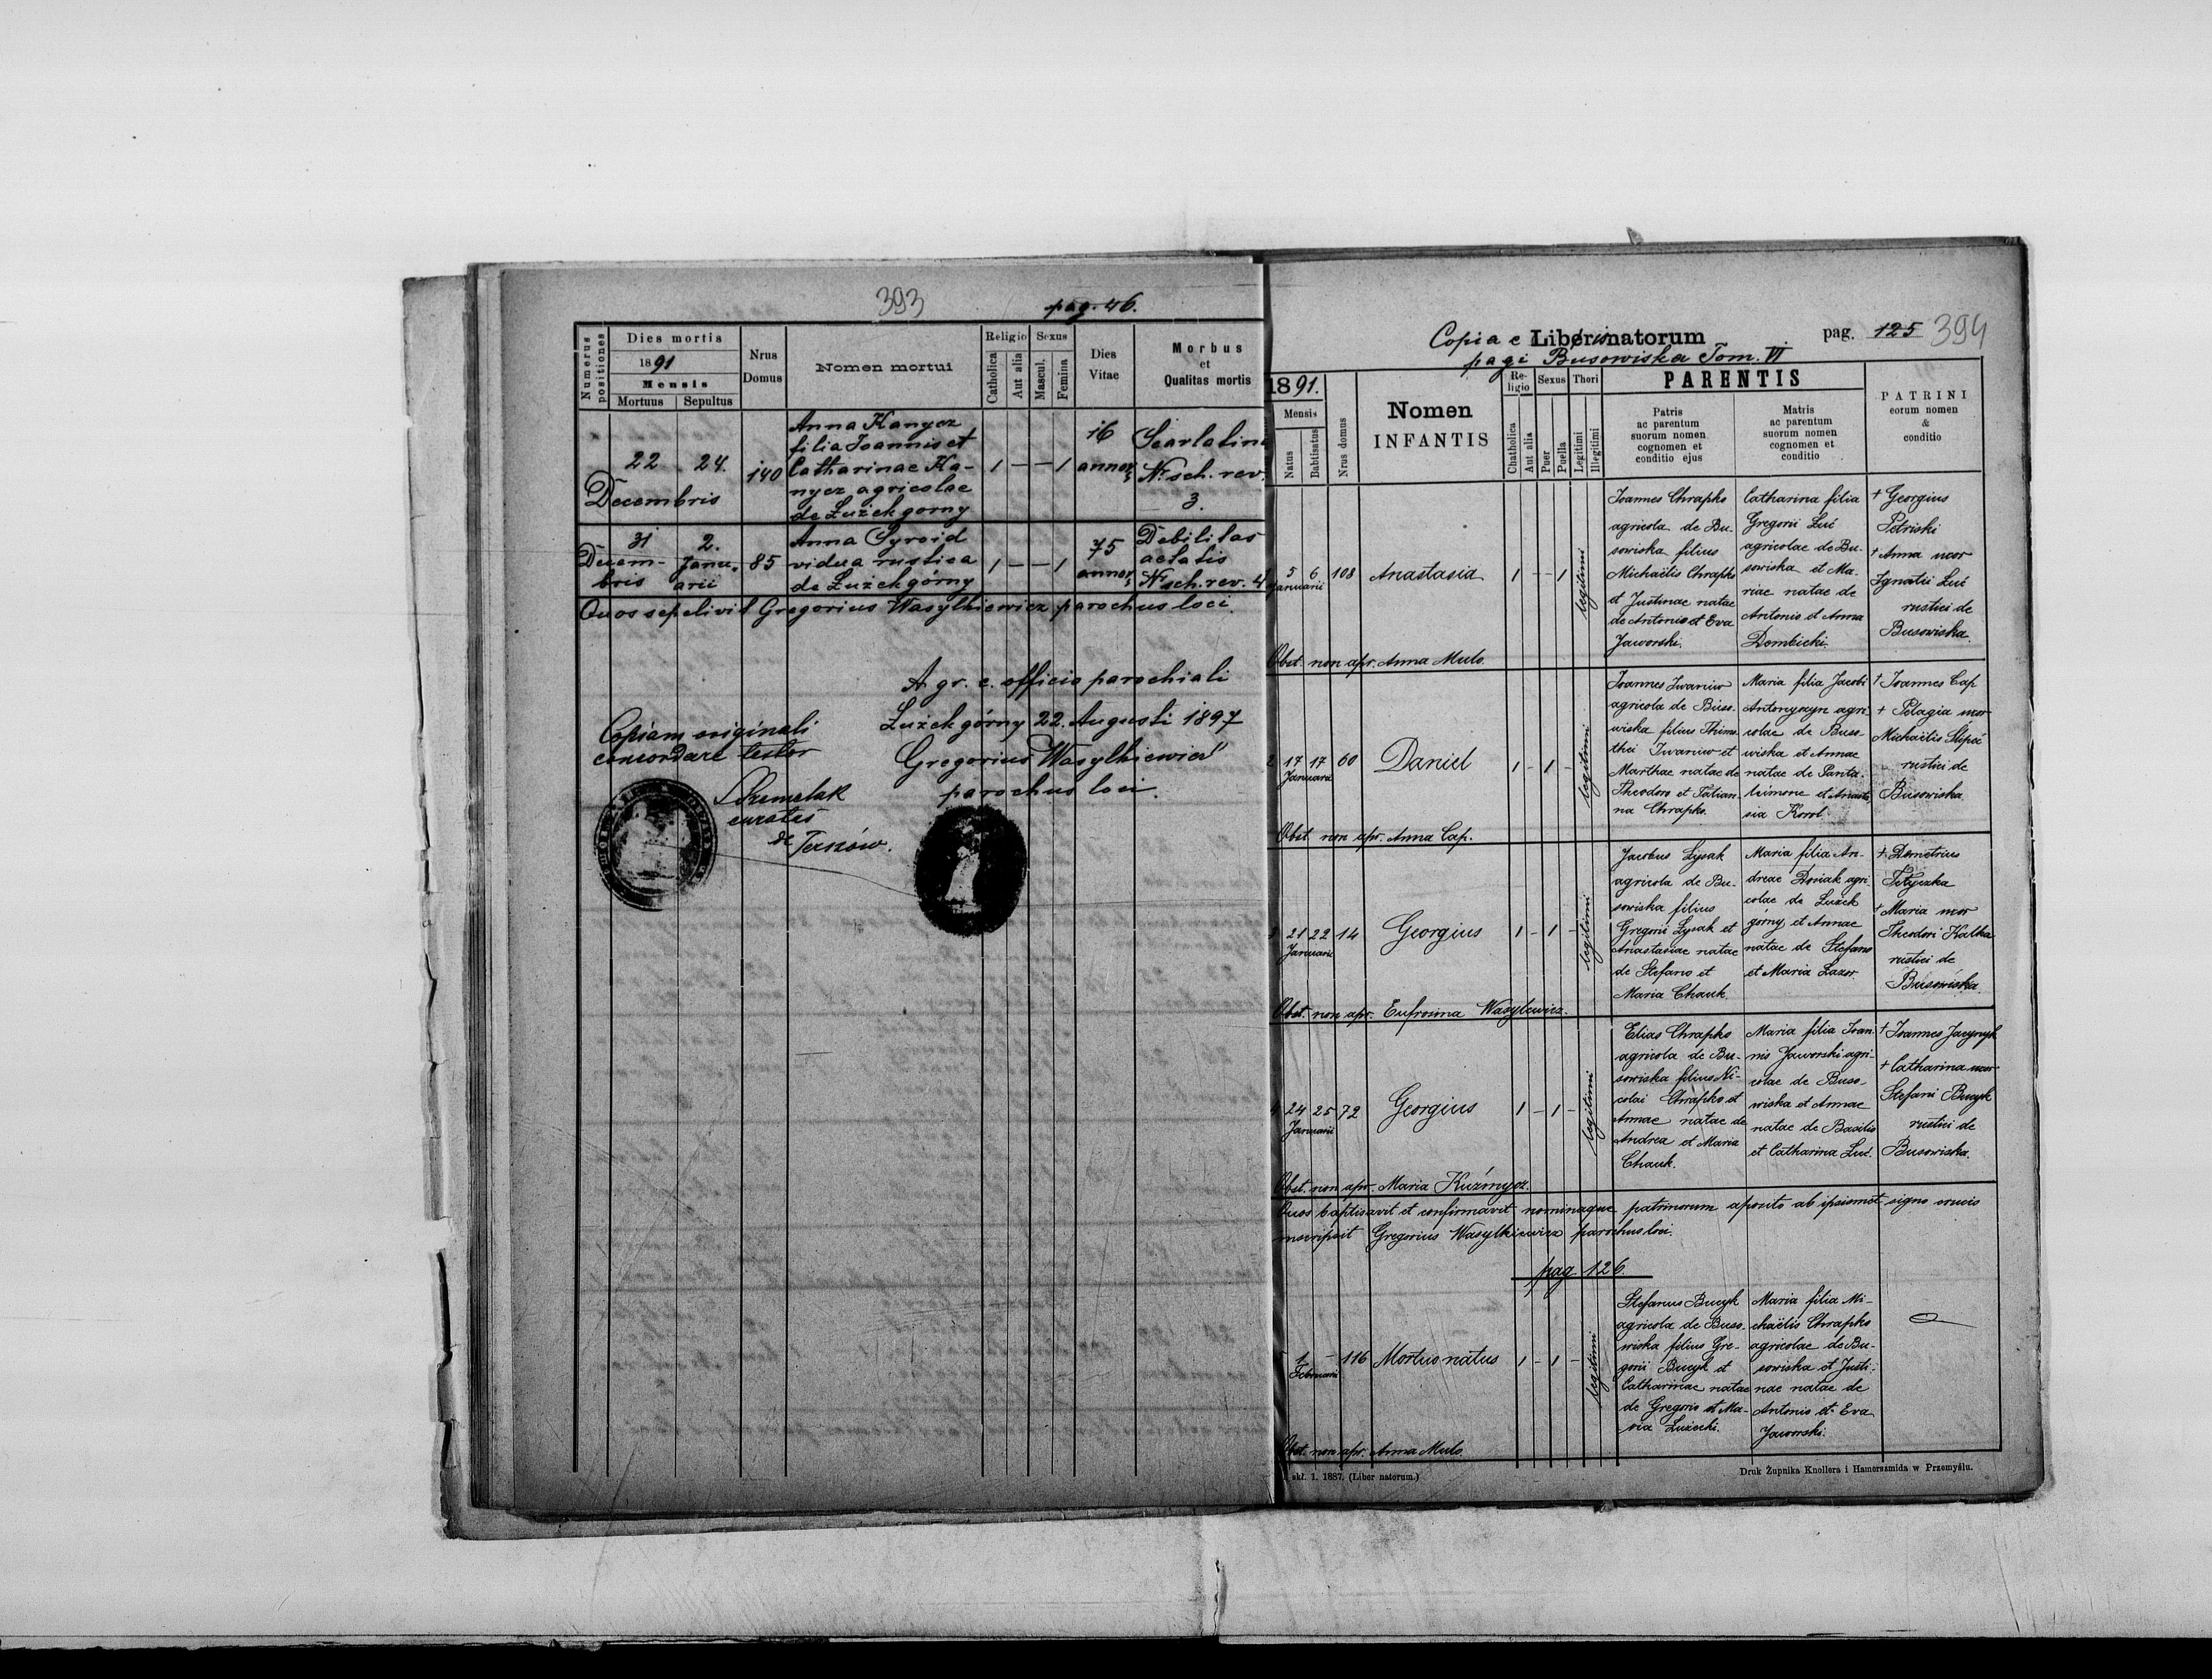 393
pag. 46.
Numerus positiones
Dies mortis
1891
Mensis
Mortuus
Sepultus
Nrus Domus
Nomen mortui
Religio
Catholica
Aut alia
Sexus
Mascul.
Femina
Dies Vitae
Morbus
et
Qualitas mortis
22 24.
Decembris
140
Anna Kanycz
filia Joannis et
Catharinae Ka-
nycz agricolae
de Łużek gorny
1 — — 1
16
annor
Scarlatina
Nr. sch. rev.
3.
31 2.
Decem- Janu-
bris arii
85
Anna Syroid
vidua rustica
de Łużek górny
1 — — 1
75
annor
Debilitas
aetatis
Nr. sch. rev. 4
Quos sepelivit Gregorius Wasylkiewicz parochus loci.
A gr. c. officio parochiali
Łużek górny 22. Augusti 1897
Gregorius Wasylkiewicz
parochus loci.
Copiam originali
concordare testor
curatus
de Terszów.
Copia e Libri natorum
pag. 125
394
pagi Busowiska Tom. VI
1891.
Mensis
Natus
Babtisatus
Nrus domus
Nomen
INFANTIS
Re-
ligio
Chatholica
Aut alia
Sexus
Puer
Puella
Thori
Legitimi
Illegitimi
PARENTIS
Patris
ac parentum
suorum nomen
cognomen et
conditio ejus
Matris
ac parentum
suorum nomen
cognomen et
conditio
PATRINI
eorum nomen
&
conditio
5 6 108
Januarii
Anastasia
1 - - 1
legitimi
Joannes Chrapko
agricola de Bu-
sowiska filius
Michaëlis Chrapko
et Justinae natae
de Antonio et Eva
Jaworski.
Catharina filia
Gregorii Łuć
agricolae de Bu-
sowiska et Ma-
riae natae de
Antonio et Anna
Dombicki.
† Georgius
Petriski
† Anna uxor
Ignatii Łuć
rustici de
Busowiska.
Obst. non apr. Anna Mulo.
2 17 17 60
Januarii
Daniel
1 - 1 -
legitimi
Joannes Iwaniw
agricola de Buso-
wiska filius Thimo-
thei Iwaniw et
Marthae natae de
Theodoro et Tatian-
na Chrapko.
Maria filia Jacobi
Antonyczyn agri-
colae de Buso-
wiska et Annae
natae de Panta-
leimone et Anasta-
sia Korol.
† Joannes Cap
† Pelagia uxor
Michaëlis
rustici de
Busowiska
Obst. non apr. Anna Cap.
3 21 22 14
Januarii
Georgius
1 - 1 -
legitimi
Jacobus Łysak
agricola de Bu-
sowiska filius
Gregorii Łysak et
Anastasiae natae
de Stefano et
Maria Chauk.
Maria filia An-
dreae Doniak agri-
colae de Łużek
górny et Annae
natae de Stefano
et Maria Łazor.
† Demetrius
Tetyczka
† Maria uxor
Theodori Kalka
rustici de
Busowiska.
Obst. non apr. Eufrosina Wasylewicz.
4 24 25 72
Januarii
Georgius
1 - 1 -
legitimi
Elias Chrapko
agricola de Bu-
sowiska filius Ni-
colai Chrapko et
Annae natae de
Andrea et Maria
Chauk.
Maria filia Joan-
nis Jaworski agri-
colae de Buso-
wiska et Annae
natae de Basilio
et Catharina Łuć.
† Joannes
† Catharina uxor
Stefani Bucyk
rustici de
Busowiska.
Obst. non apr. Maria Kuźmycz.
Quos baptisavit et confirmavit nominaque patrinorum aposito ab ipsismet signo crucis
inscripsit Gregorius Wasylkiewicz parochus loci.
pag. 126.
5 1 - 116
Februarii
Mortuo natus
1 - 1 -
legitimi
Stefanus Bucyk
agricola de Buso-
wiska filius Gre-
gorii Bucyk et
Catharinae natae
de Gregorio et Ma-
ria Łużecki.
Maria filia Mi-
chaëlis Chrapko
agricolae de Bu-
sowiska et Justi-
nae natae de
Antonio et Eva
Jaworski.
Obst. non apr. Anna Mulo.
skł. 1. 1887. (Liber natorum.)
Druk Żupnika Knollera i Hamerszmida w Przemyślu.